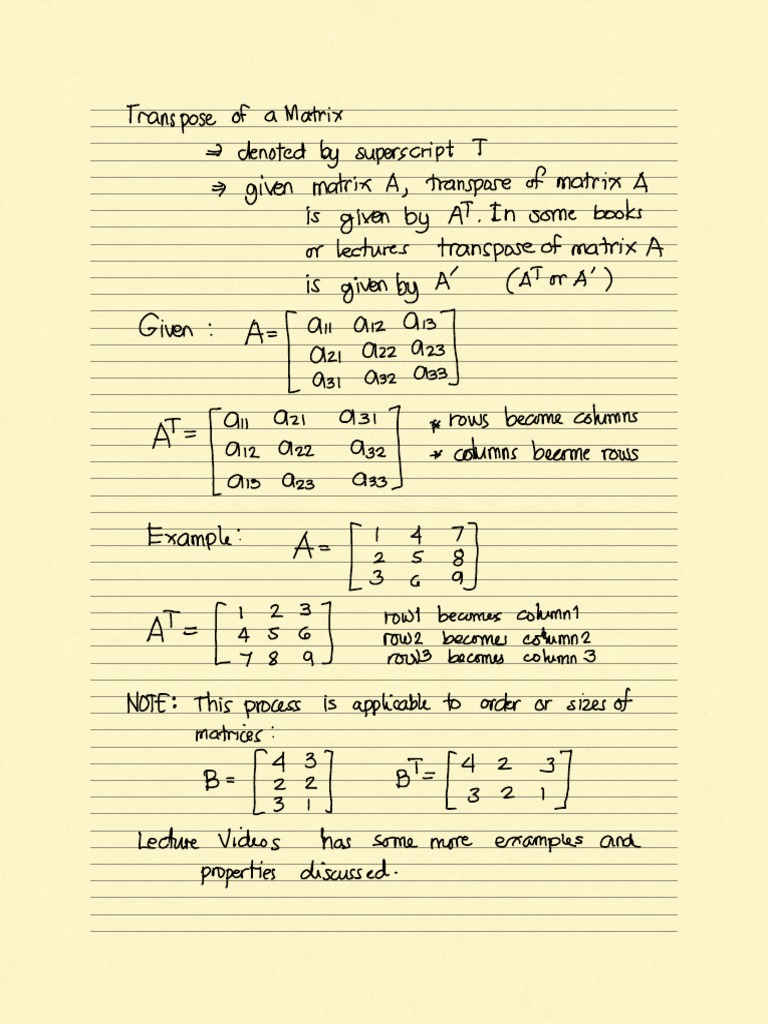 Transpose of a Matrix
⇒ denoted by superscript T
⇒ given matrix A, transpose of matrix A
is given by Aᵀ. In some books
or lectures transpose of matrix A
is given by A′ (Aᵀ or A′)
Given : A = [a11 a12 a13
a21 a22 a23
a31 a32 a33]
Aᵀ = [a11 a21 a31 * rows become columns
a12 a22 a32 * columns become rows
a13 a23 a33]
Example: A = [1 4 7
2 5 8
3 6 9]
Aᵀ = [1 2 3 row1 becomes column1
4 5 6 row2 becomes column2
7 8 9] row3 becomes column 3
NOTE: This process is applicable to order or sizes of
matrices:
B = [4 3 Bᵀ = [4 2 3
2 2 3 2 1]
3 1]
Lecture Videos has some more examples and
properties discussed.